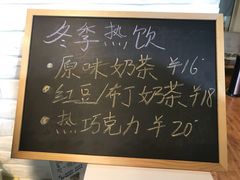 冬季热饮
· 原味奶茶 ¥16
· 红豆/布丁奶茶 ¥18
· 热巧克力 ¥20